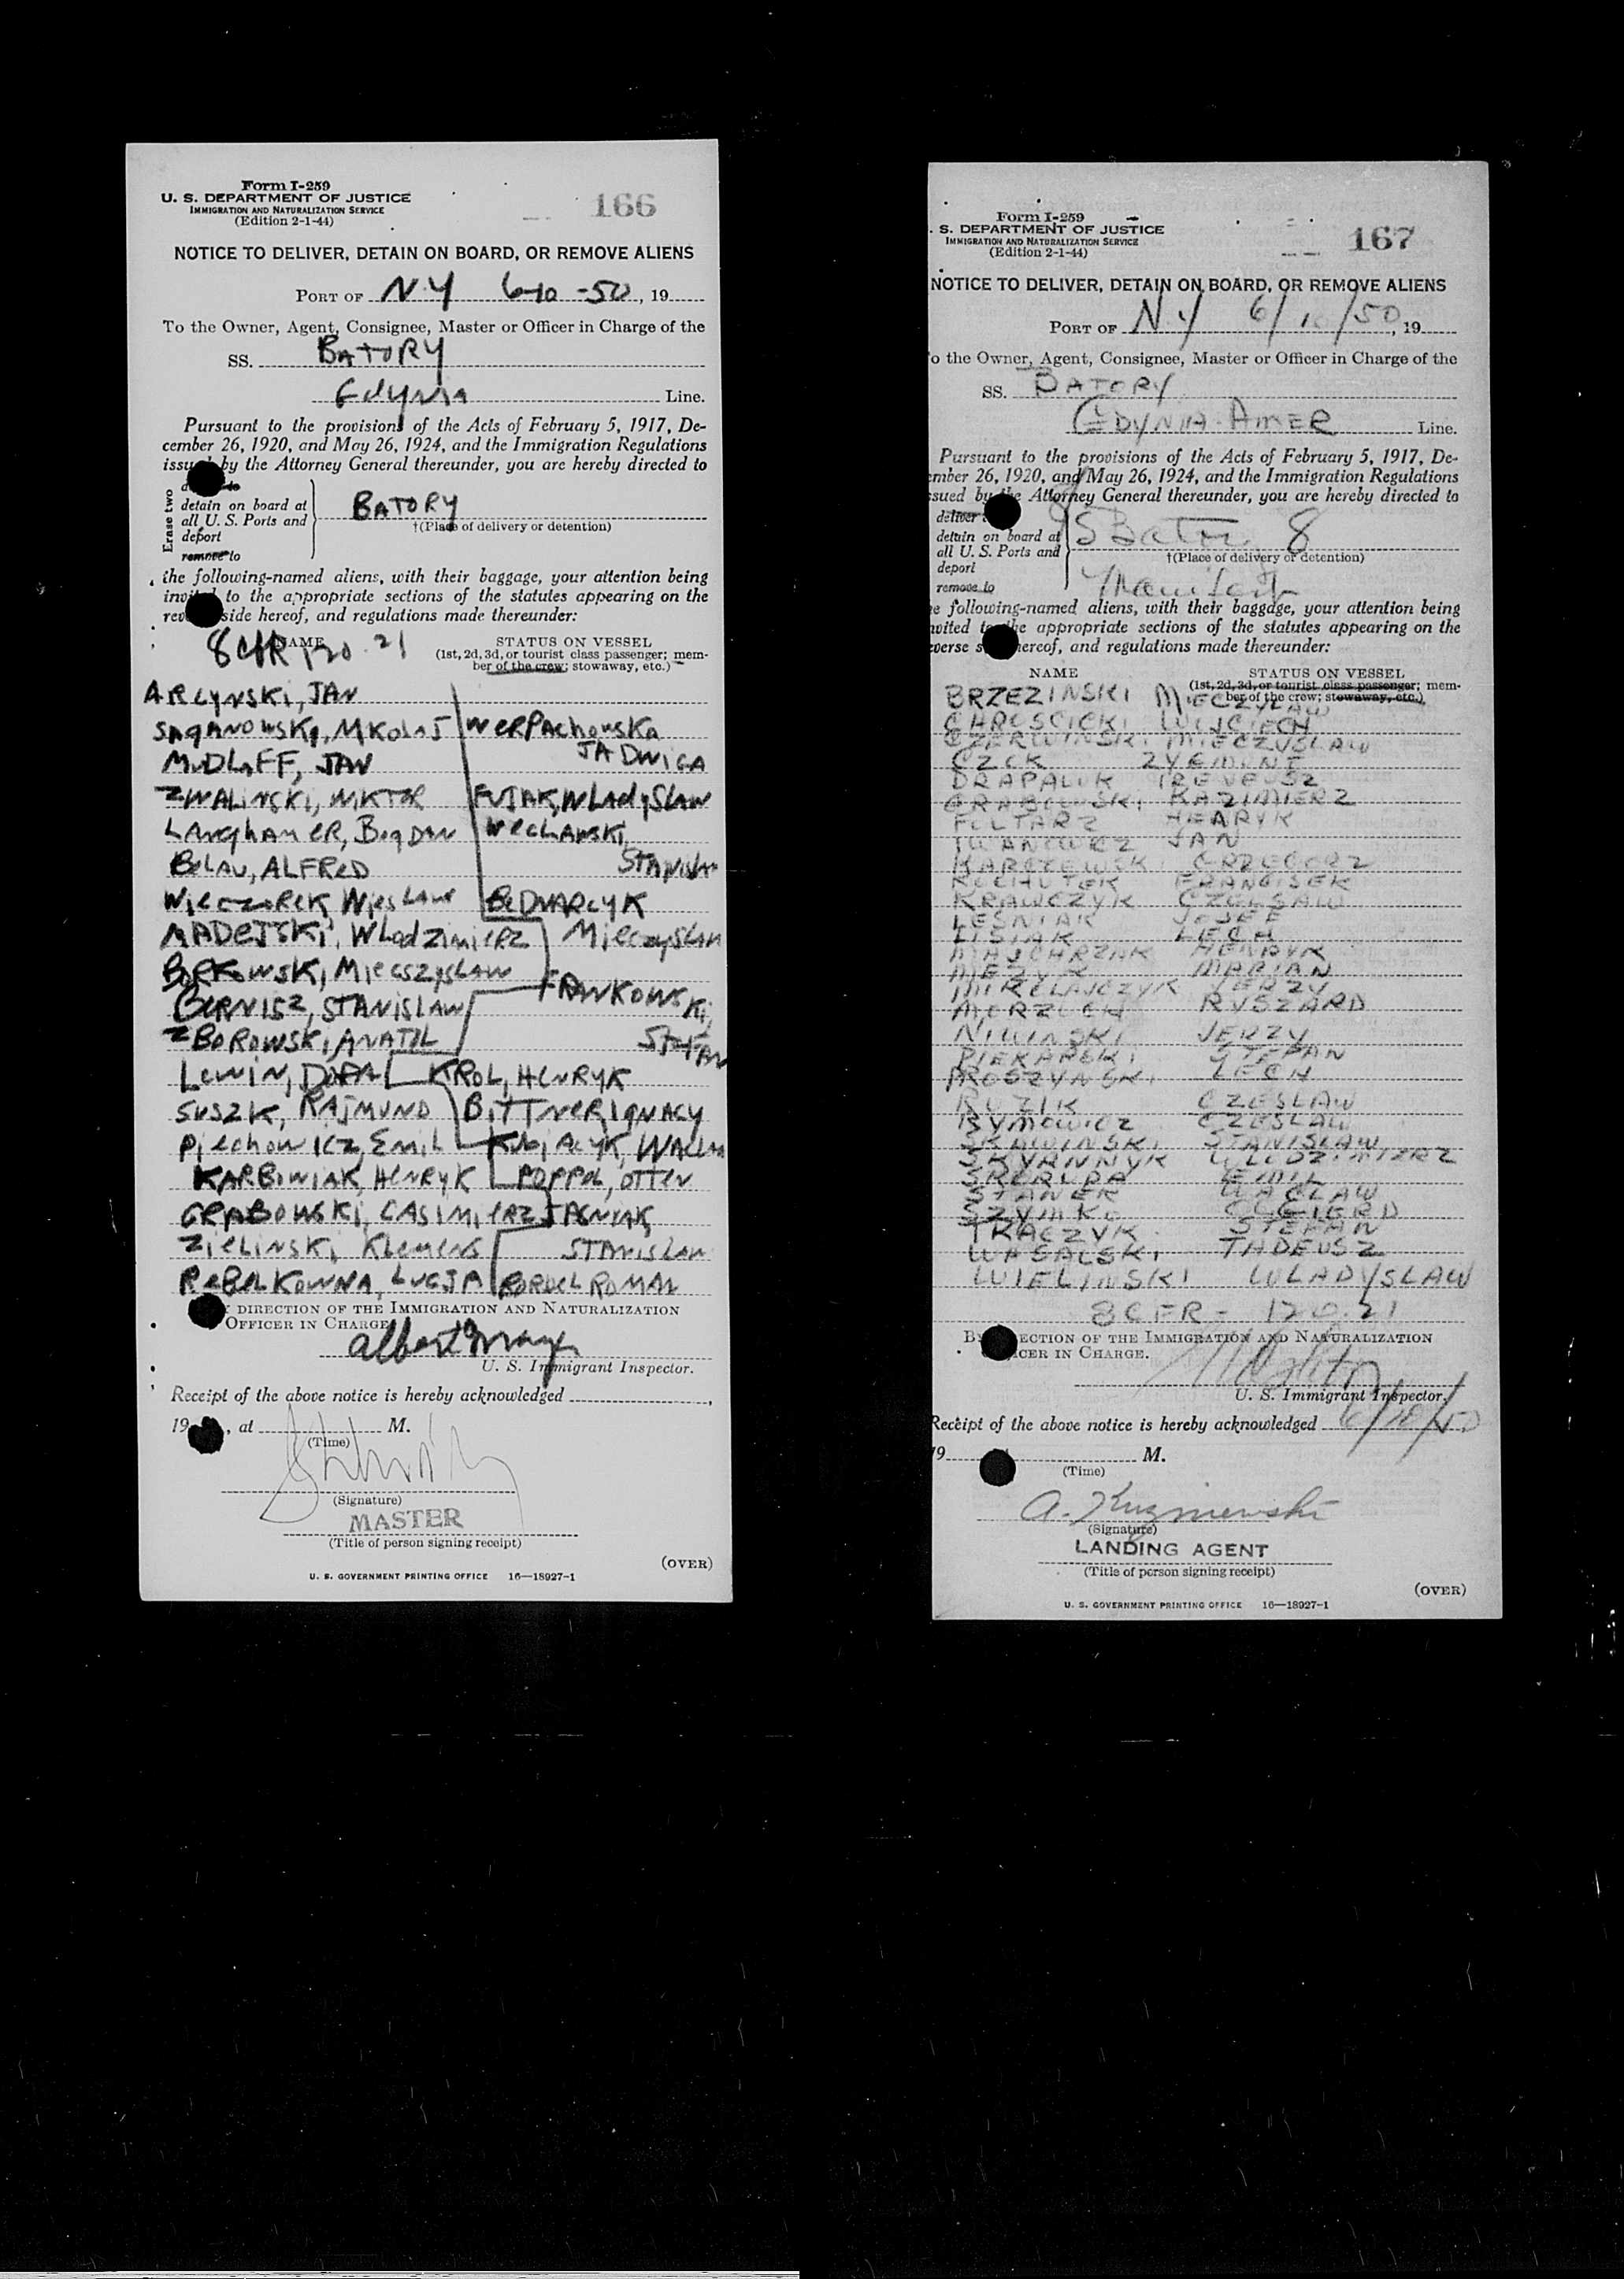 Form I-259
U. S. DEPARTMENT OF JUSTICE
IMMIGRATION AND NATURALIZATION SERVICE
(Edition 2-1-44)
166
NOTICE TO DELIVER, DETAIN ON BOARD, OR REMOVE ALIENS
PORT OF N.Y 6-10-50, 19
To the Owner, Agent, Consignee, Master or Officer in Charge of the
SS. BATORY
Gdynia Line.
Pursuant to the provisions of the Acts of February 5, 1917, De-
cember 26, 1920, and May 26, 1924, and the Immigration Regulations
issued by the Attorney General thereunder, you are hereby directed to
Erase two
detain on board at
all U. S. Ports and
deport
remove to
BATORY
†(Place of delivery or detention)
the following-named aliens, with their baggage, your attention being
invited to the appropriate sections of the statutes appearing on the
side hereof, and regulations made thereunder:
8 CFR 120.21
NAME
STATUS ON VESSEL
(1st, 2d, 3d, or tourist class passenger; mem-
ber of the crew; stowaway, etc.)
ARCYNSKI, JAN
SAGANOWSKI, MKOLAJ WERPAChowska
JADWIGA
MUDLAFF, JAN
ZWALINSKI, WIKTOR FUJAK, WLADYSLAW
LANGhAMER, Bogdan WECLAWSKI,
STANISLAW
BELAU, ALFRED
WIECZOREK, WIESLAW BEDNARCYK
MADEJSKI, Wlodzimierz Mieczyslaw
BORKOWSKI, MIECSZYSLAW
FRANKOWSKI,
BERNISZ, STANISLAW
ZBOROWSKI, ANATOL STEFAN
LEWIN, DORA KROL, HENRYK
SUSZK, RAJMUND BITTNER IGNACY
PIECHOWICZ, EMIL KUBIACYK,
KARBOWIAK, HENRYK POPPOL, OTTEN
GRABOWSKI, CASIMIERZ JASNIAK,
ZIELINSKI, KLEMENS STANISLAW
REBELKOWNA, LUCJA ROMAN
DIRECTION OF THE IMMIGRATION AND NATURALIZATION
OFFICER IN CHARGE
Albert
U. S. Immigrant Inspector.
Receipt of the above notice is hereby acknowledged
19 , at M.
(Time)
(Signature)
MASTER
(Title of person signing receipt)
(OVER)
U. S. GOVERNMENT PRINTING OFFICE 16—18927-1
Form I-259
S. DEPARTMENT OF JUSTICE
IMMIGRATION AND NATURALIZATION SERVICE
(Edition 2-1-44)
167
NOTICE TO DELIVER, DETAIN ON BOARD, OR REMOVE ALIENS
PORT OF N.Y 6/10/50, 19
o the Owner, Agent, Consignee, Master or Officer in Charge of the
SS. BATORY
GDYNIA-AMER Line.
Pursuant to the provisions of the Acts of February 5, 1917, De-
mber 26, 1920, and May 26, 1924, and the Immigration Regulations
ssued by the Attorney General thereunder, you are hereby directed to
deliver
detain on board at
all U. S. Ports and
deport
remove to
†(Place of delivery or detention)
e following-named aliens, with their baggage, your attention being
vited to the appropriate sections of the statutes appearing on the
verse hereof, and regulations made thereunder:
NAME
STATUS ON VESSEL
(1st, 2d, 3d, or tourist class passenger; mem-
ber of the crew; stowaway, etc.)
BRZEZINSKI MIECZYLAW
CHROSCICKI WOJCIECH
CZERWINSKI MIECZYSLAW
CZCK ZYGMUNT
DRAPALUK IRENEUSZ
GRABOWSKI KAZIMIERZ
FOLTARZ HENRYK
IWANOWICZ JAN
KARCZEWSKI GRZEGORZ
KOCHUTEK FRANCISEK
KRAWCZYK CZELSAW
LESNIAK JOSEF
LISIAK LECH
MAJCHRZAK HENRYK
MEZYK MARIAN
MIKOLAJCZYK JERZY
MORZUCH RYSZARD
NIWINSKI JERZY
PIEKARSKI STEFAN
PROSZYNSKI LECH
RUZIK CZESLAW
RYMOWICZ CZESLAW
SKAWINSKI STANISLAW
SKYANNYK WLODZIMIERZ
SKORUPA EMIL
STANEK WACLAW
SZYMKO OLGIERD
TKACZYK STEFAN
WASALSKI TADEUSZ
WIELINSKI WLADYSLAW
8 CFR - 120.21
ECTION OF THE IMMIGRATION AND NATURALIZATION
CER IN CHARGE.
U. S. Immigrant Inspector.
Receipt of the above notice is hereby acknowledged 6/10/50
19 M.
(Time)
A. Kuzniewski
(Signature)
LANDING AGENT
(Title of person signing receipt)
(OVER)
U. S. GOVERNMENT PRINTING OFFICE 16—18927-1